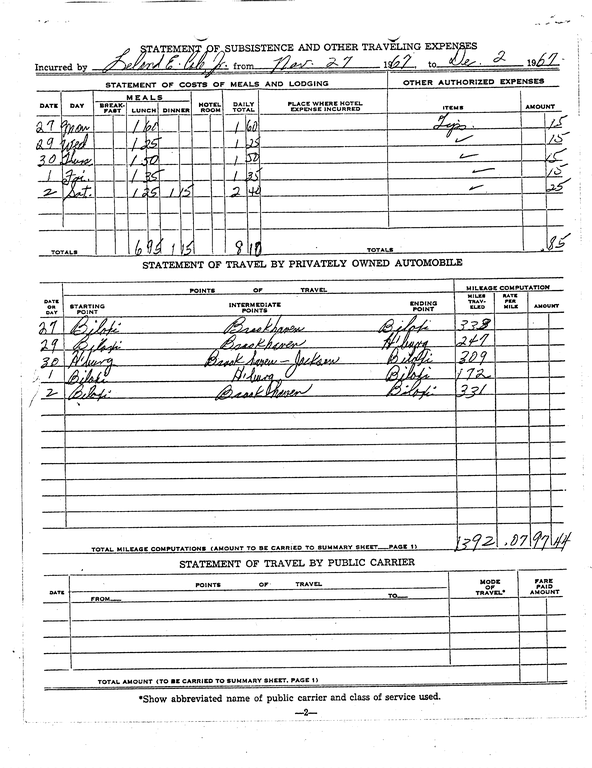 STATEMENT OF SUBSISTENCE AND OTHER TRAVELING EXPENSES
Incurred by Leland E. Cole Jr. from Nov. 27 1967 to Dec. 2 1967.
STATEMENT OF COSTS OF MEALS AND LODGING OTHER AUTHORIZED EXPENSES
MEALS
DATE DAY BREAK-FAST LUNCH DINNER HOTEL ROOM DAILY TOTAL PLACE WHERE HOTEL EXPENSE INCURRED ITEMS AMOUNT
27 Mon 1 60 1 60 Tips 15
29 Wed 1 25 1 25 ✓ 15
30 Thurs 1 50 1 50 ✓ 15
1 Fri. 1 35 1 35 ✓ 15
2 Sat. 1 25 1 15 2 40 ✓ 25
TOTALS 6 95 1 15 8 10 TOTALS .85
STATEMENT OF TRAVEL BY PRIVATELY OWNED AUTOMOBILE
POINTS OF TRAVEL MILEAGE COMPUTATION
DATE OR DAY STARTING POINT INTERMEDIATE POINTS ENDING POINT MILES TRAV-ELED RATE PER MILE AMOUNT
27 Biloxi Brookhaven Biloxi 338
29 Biloxi Brookhaven H'burg 247
30 H'burg Brookhaven - Jackson Biloxi 309
1 Biloxi H'burg Biloxi 172
2 Biloxi Brookhaven Biloxi 331
TOTAL MILEAGE COMPUTATIONS (AMOUNT TO BE CARRIED TO SUMMARY SHEET PAGE 1) 1392 .07 97 44
STATEMENT OF TRAVEL BY PUBLIC CARRIER
DATE POINTS OF TRAVEL MODE OF TRAVEL* FARE PAID AMOUNT
FROM TO
TOTAL AMOUNT (TO BE CARRIED TO SUMMARY SHEET, PAGE 1)
*Show abbreviated name of public carrier and class of service used.
—2—